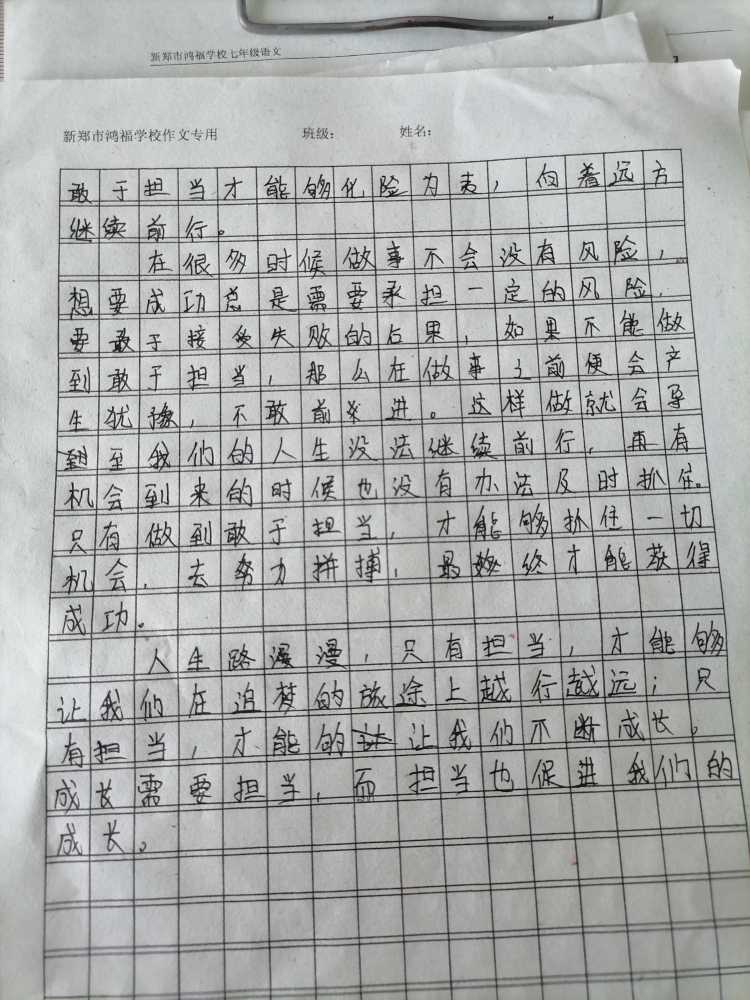 新郑市鸿福学校七年级语文
新郑市鸿福学校作文专用 班级： 姓名：
敢于担当才能够化险为夷，向着远方
继续前行。
在很多时候做事不会没有风险，
想要成功总是需要承担一定的风险，
要敢于接受失败的后果，如果不能做
到敢于担当，那么在做事之前便会产
生犹豫，不敢前进。这样做就会导
至我们的人生没法继续前行，再有
机会到来的时候也没有办法及时抓住。
只有做到敢于担当，才能够抓住一切
机会，去努力拼搏，最终才能获得
成功。
人生路漫漫，只有担当，才能够
让我们在追梦的旅途上越行越远；只
有担当，才能的让我们不断成长。
成长需要担当，而担当也促进我们的
成长。